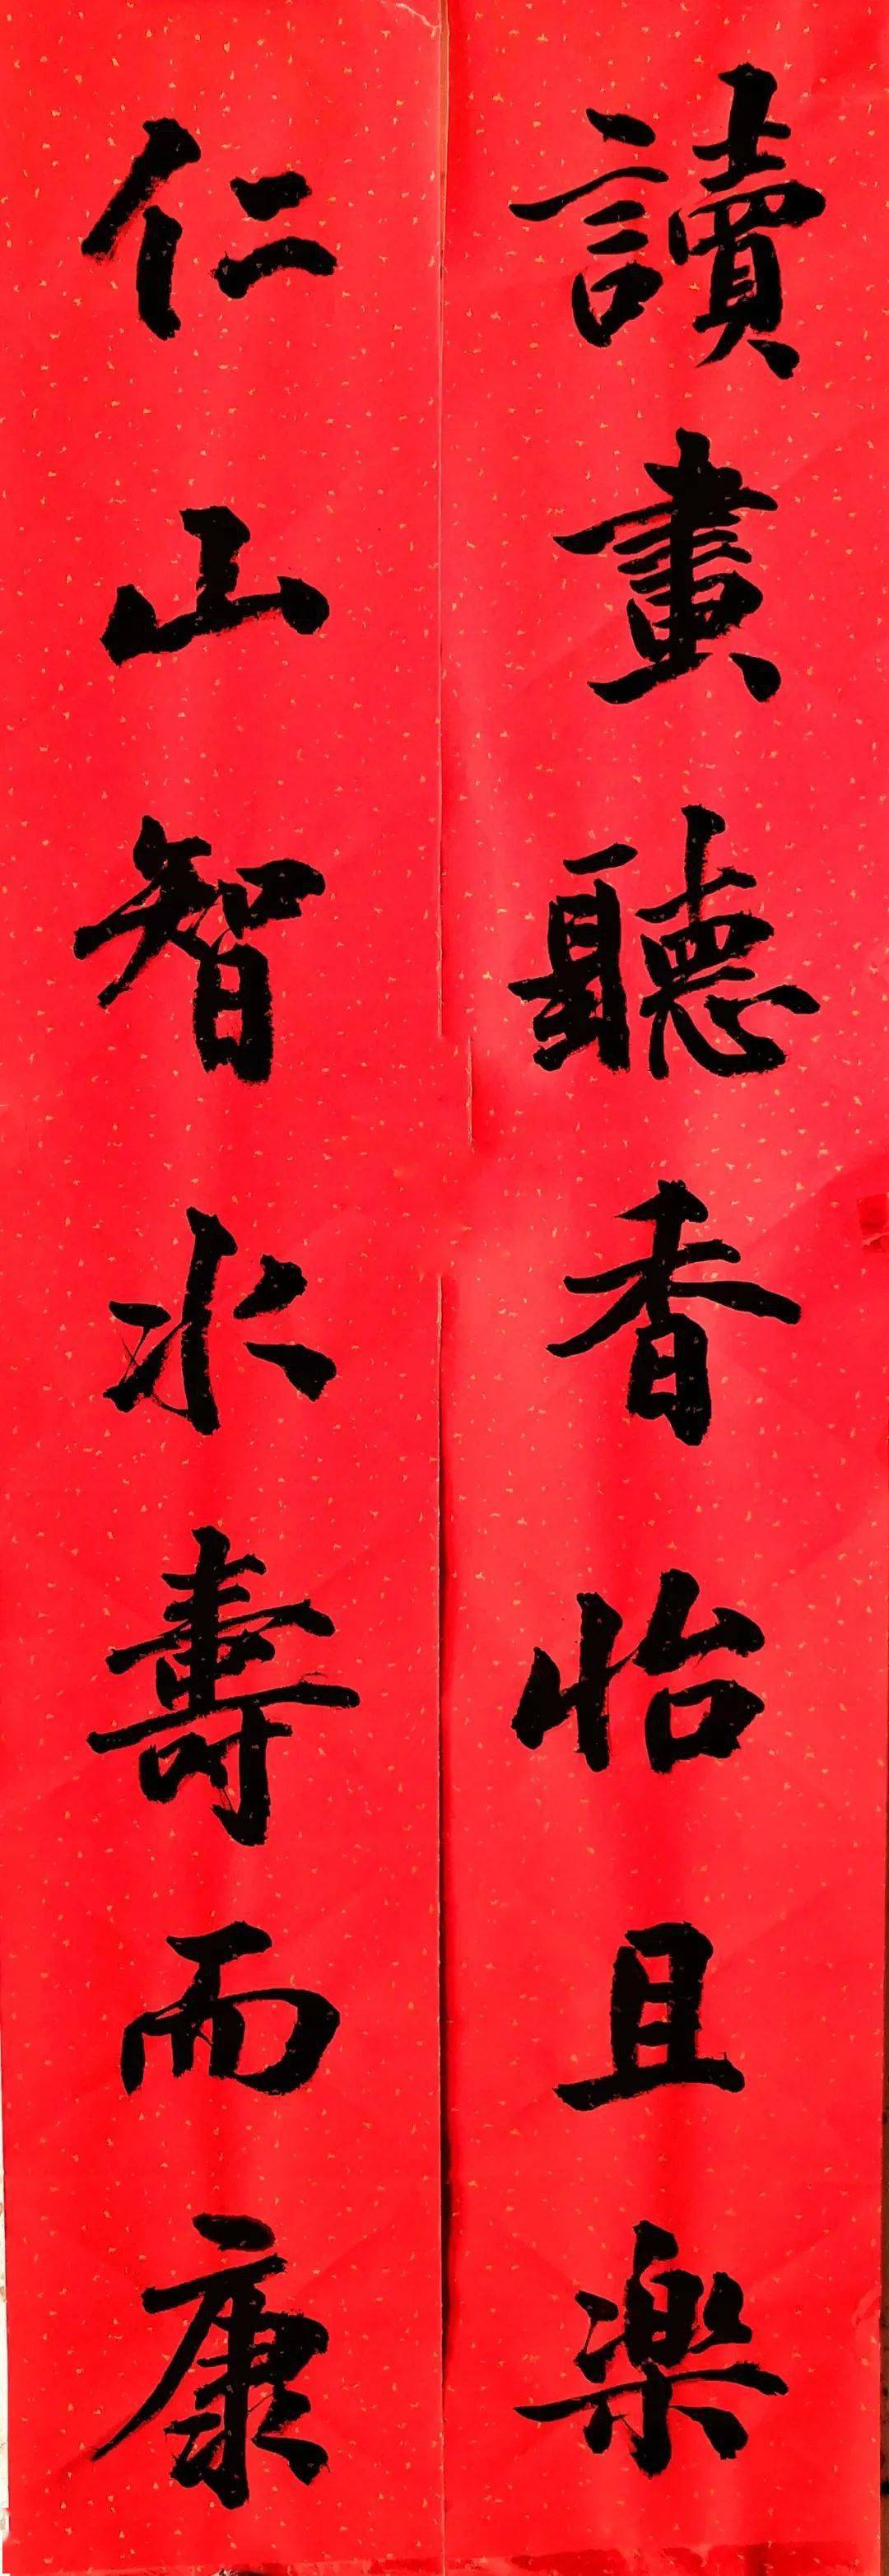 讀畫聽香怡且樂
仁山智水壽而康